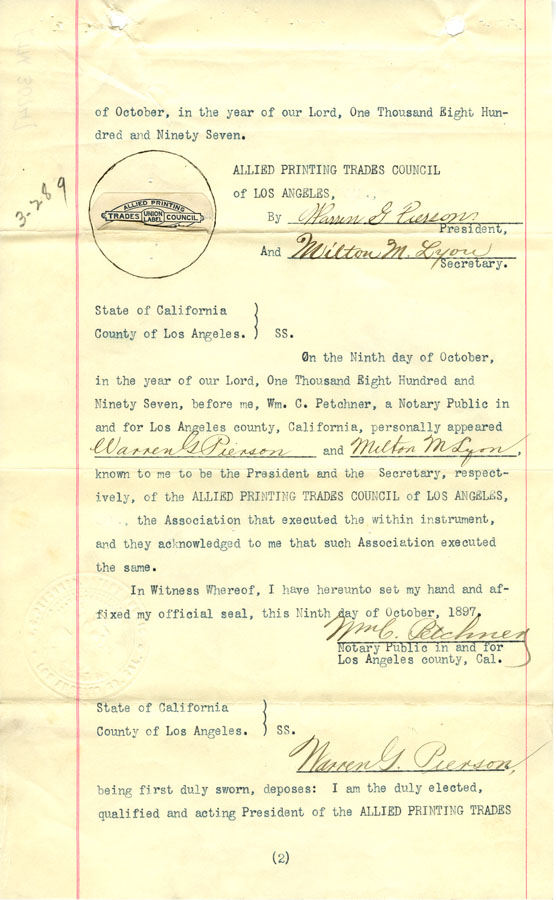 of October, in the year of our Lord, One Thousand Eight Hun-
dred and Ninety Seven.
3-289
ALLIED PRINTING
TRADES UNION LABEL COUNCIL
ALLIED PRINTING TRADES COUNCIL
of LOS ANGELES,
By Warren G Pierson
President,
And Milton M. Lyon
Secretary.
State of California )
County of Los Angeles. ) SS.
On the Ninth day of October,
in the year of our Lord, One Thousand Eight Hundred and
Ninety Seven, before me, Wm. C. Petchner, a Notary Public in
and for Los Angeles county, California, personally appeared
Warren G Pierson and Milton M Lyon,
known to me to be the President and the Secretary, respect-
ively, of the ALLIED PRINTING TRADES COUNCIL of LOS ANGELES,
the Association that executed the within instrument,
and they acknowledged to me that such Association executed
the same.
In Witness Whereof, I have hereunto set my hand and af-
fixed my official seal, this Ninth day of October, 1897.
Wm C. Petchner
Notary Public in and for
Los Angeles county, Cal.
State of California )
County of Los Angeles. ) SS.
Warren G. Pierson,
being first duly sworn, deposes: I am the duly elected,
qualified and acting President of the ALLIED PRINTING TRADES
(2)